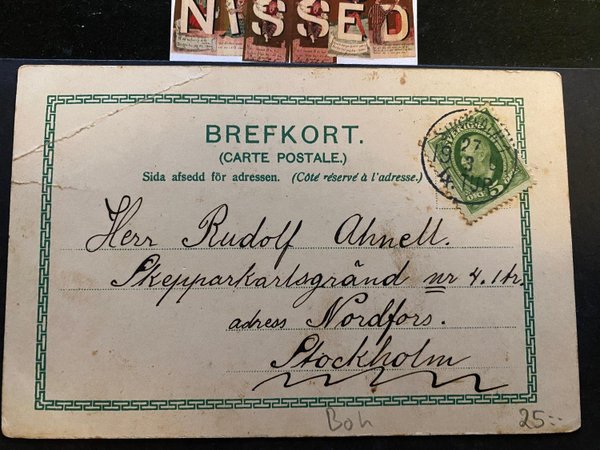 NISSED
BREFKORT.
(CARTE POSTALE.)
Sida afsedd för adressen. (Côté réservé à l'adresse.)
Herr Rudolf Ahnell.
Skepparkarlsgränd nr 4. 1 tr.
adress Nordfors.
Stockholm
Boh
25:-
27
3
5